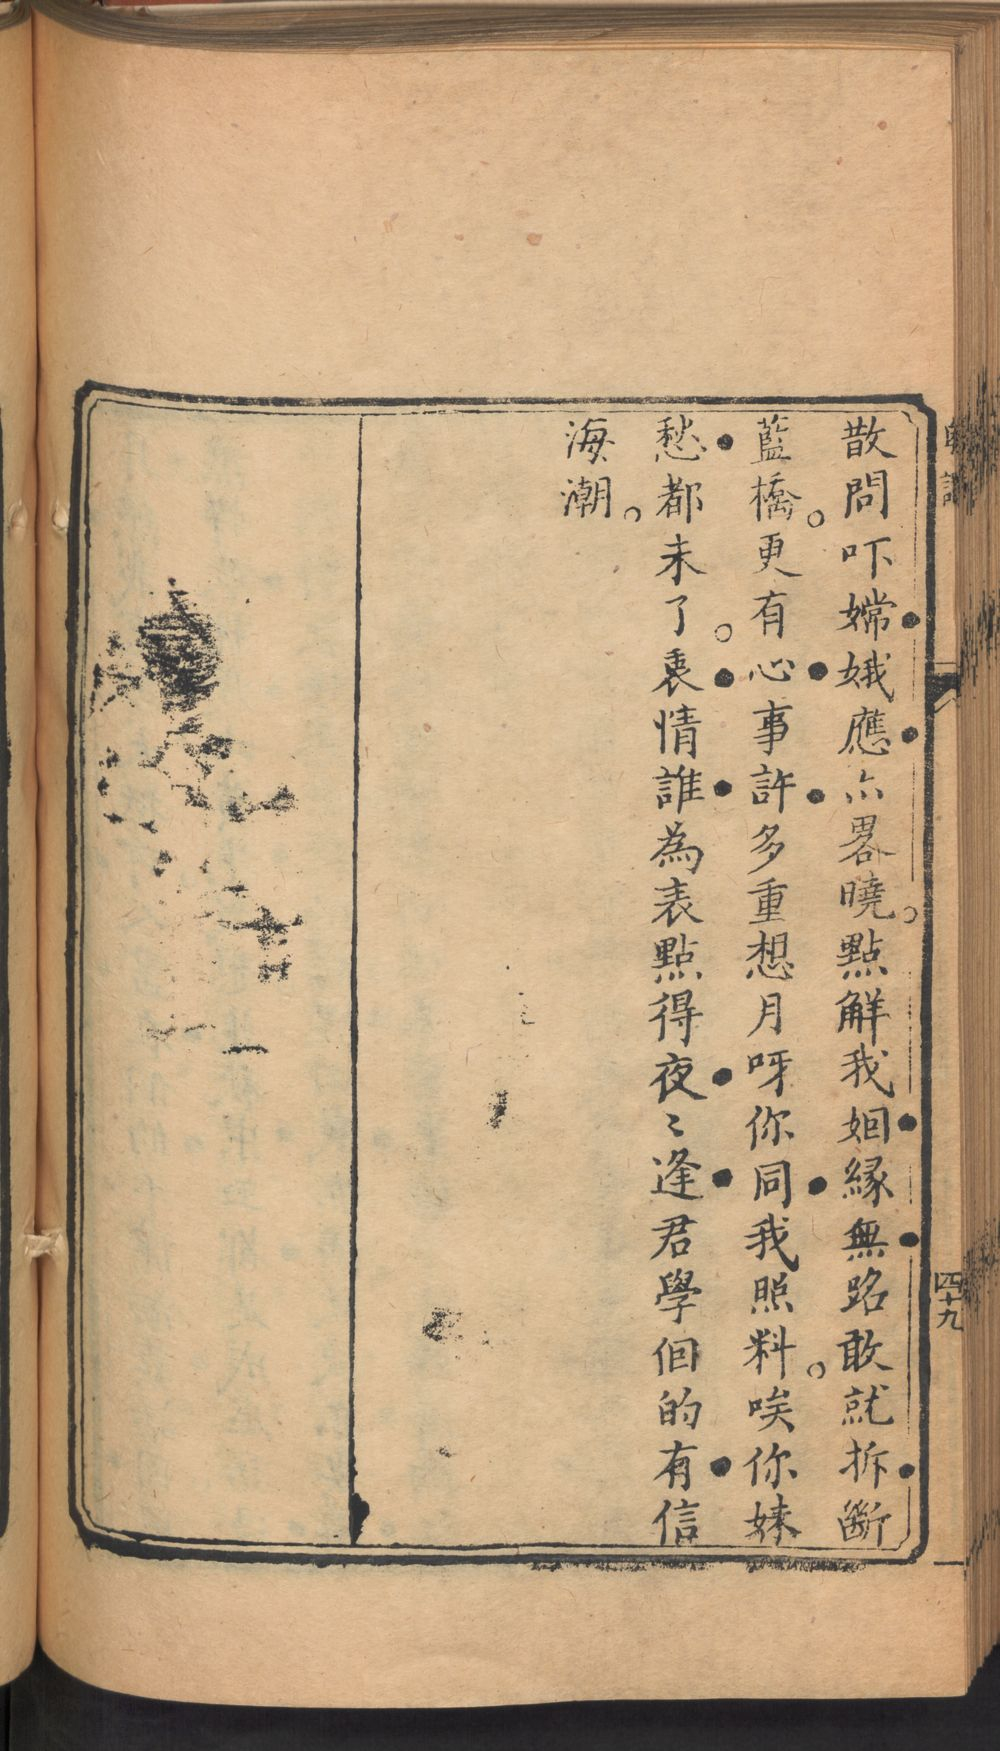 散問吓嫦娥應亦畧曉。點解我姻緣無路敢就拆斷
藍橋。更有心事許多重想月呀你同我照料。唉你妹
愁都未了。衷情誰為表點得夜〻逢君學佢的有信
海潮。
四十九